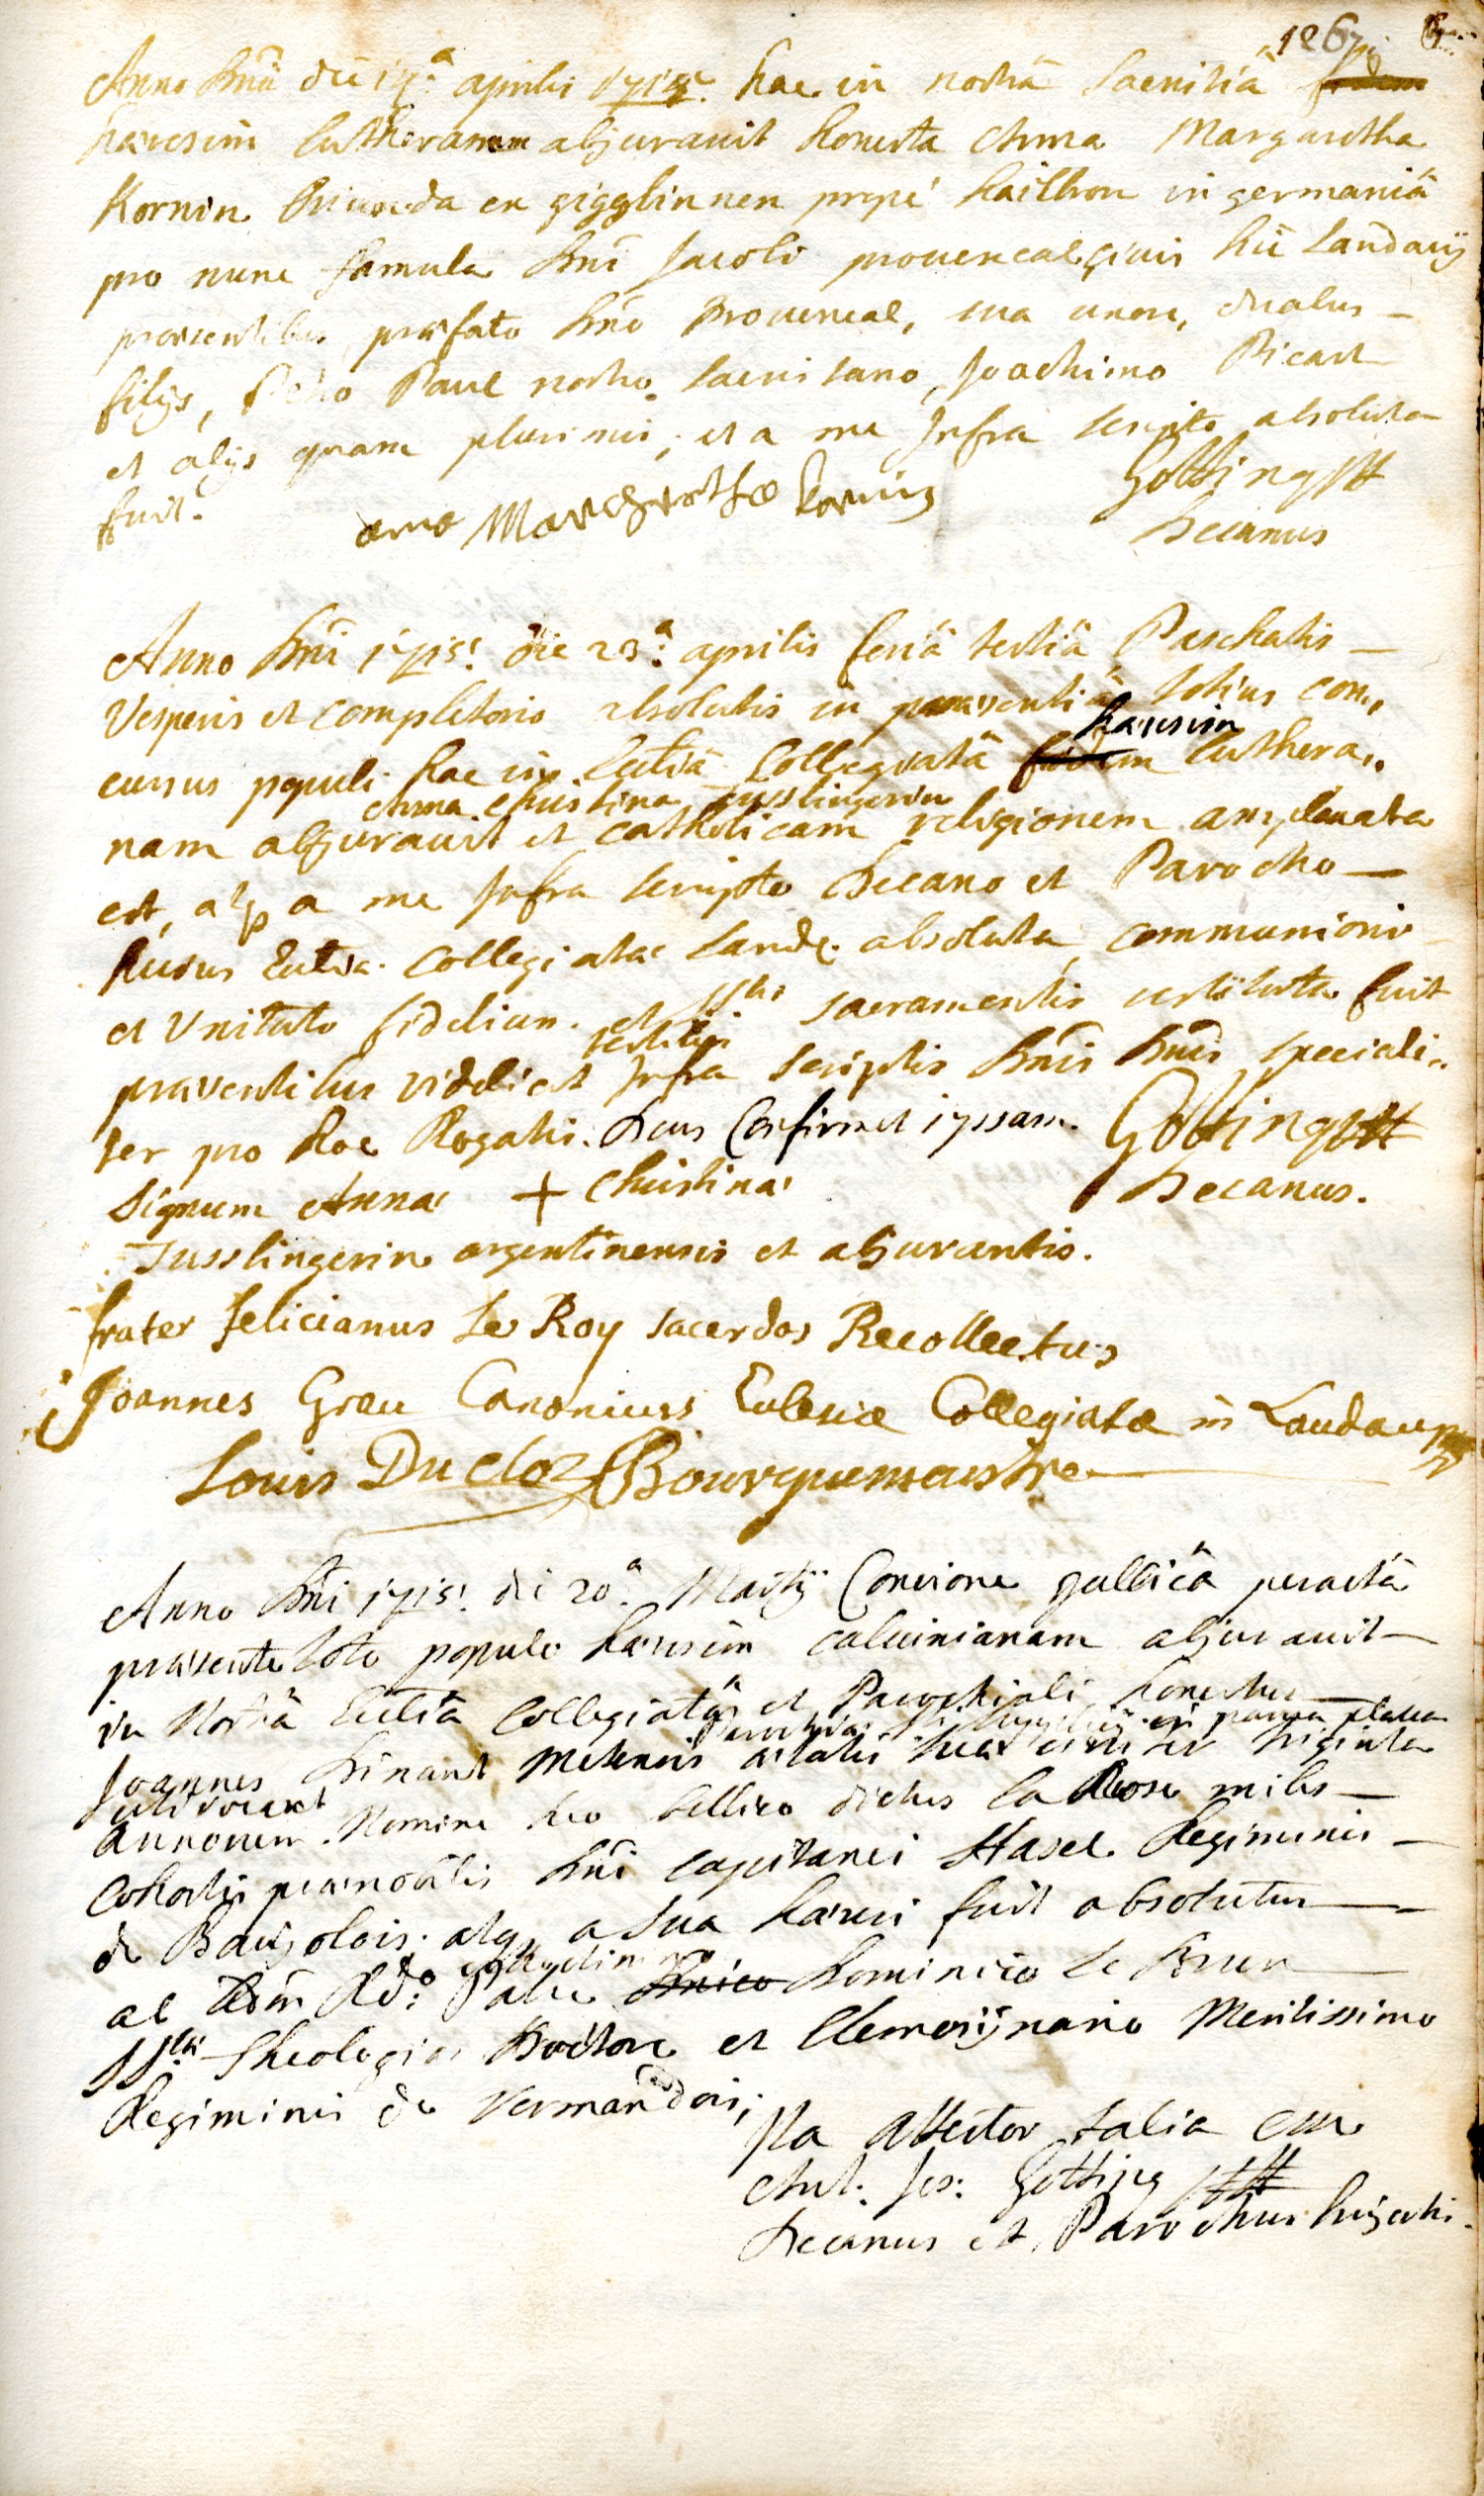 126
Anno Dnĩ die 17.ª aprilis 1715. hac in nostrâ sacristiâ
haeresim lutheranam abjuravit honesta Anna Margaretha
Kornin. Oriunda ex gigglinnen propè hailbron in germaniâ
pro nunc famula Dnĩ Jacobi provencal civis hic Landavij
praesentibus praefato Dnõ Provencal, sua uxore, duabus
filijs, Petro Paul nostro sacristano, Joachimo Picart
et alijs quam plurimis, et a me Infra scripto absoluta
fuit.
anna Margaretha Kornin
Gotting
Decanus
Anno Dnĩ 1715! die 23.ª aprilis feriâ tertiâ Paschatis
Vesperis et completorio absolutis in praesentiâ totius con„
haeresim
cursus populi hac in Ecclĩâ Collegiatâ fidem luthera„
Anna Christina Jusslingerin
nam abjuravit et catholicam religionem amplexata
est, atq a me Infra scripto Decano et Parocho
hujus Ecclĩae Collegiatae Land. absoluta, communioni
et Unitati fidelium et SStis sacramentis restituta fuit
testibus
praesentibus videlicet Infra scriptis Dnĩs Dnĩs speciali„
ter pro hoc Rogatis. Deus Confirmet ipsam.
Gotting
Decanus.
Signum Annae + Christinae
Jusslingerin argentinensis et abjurantis.
frater felicianus Le Roy sacerdos Recollectus
Joannes Grau Canonicus Ecclesiae Collegiatae in Landau
Louis Duclos Bourguemaistre
Anno Dnĩ 1715! die 20.ª Martij Concione gallicâ peractâ
praesente toto populo haeresim calvinianam abjuravit
in Nostrâ Ecclĩâ Collegiatâ et Parochiali honestus
parva platea
Joannes Dinant Metensis aetatis suae circiter triginta
uti vocant
annorum. Nomine suo bellico dictus la Rose miles
Cohortis Dnĩ capitanei Hasel Regiminis
de Baujolois. atq a sua haeresi fuit absolutus
ab Rdo: Patre Dnico Dominico le Brun
SStae Theologiae Doctore et Elemosijnario Meritissimo
Regiminis de Vermandois;
Ita attestor talia esse
Ant. Jos: Gotting
Decanus et Parochus hujatis.